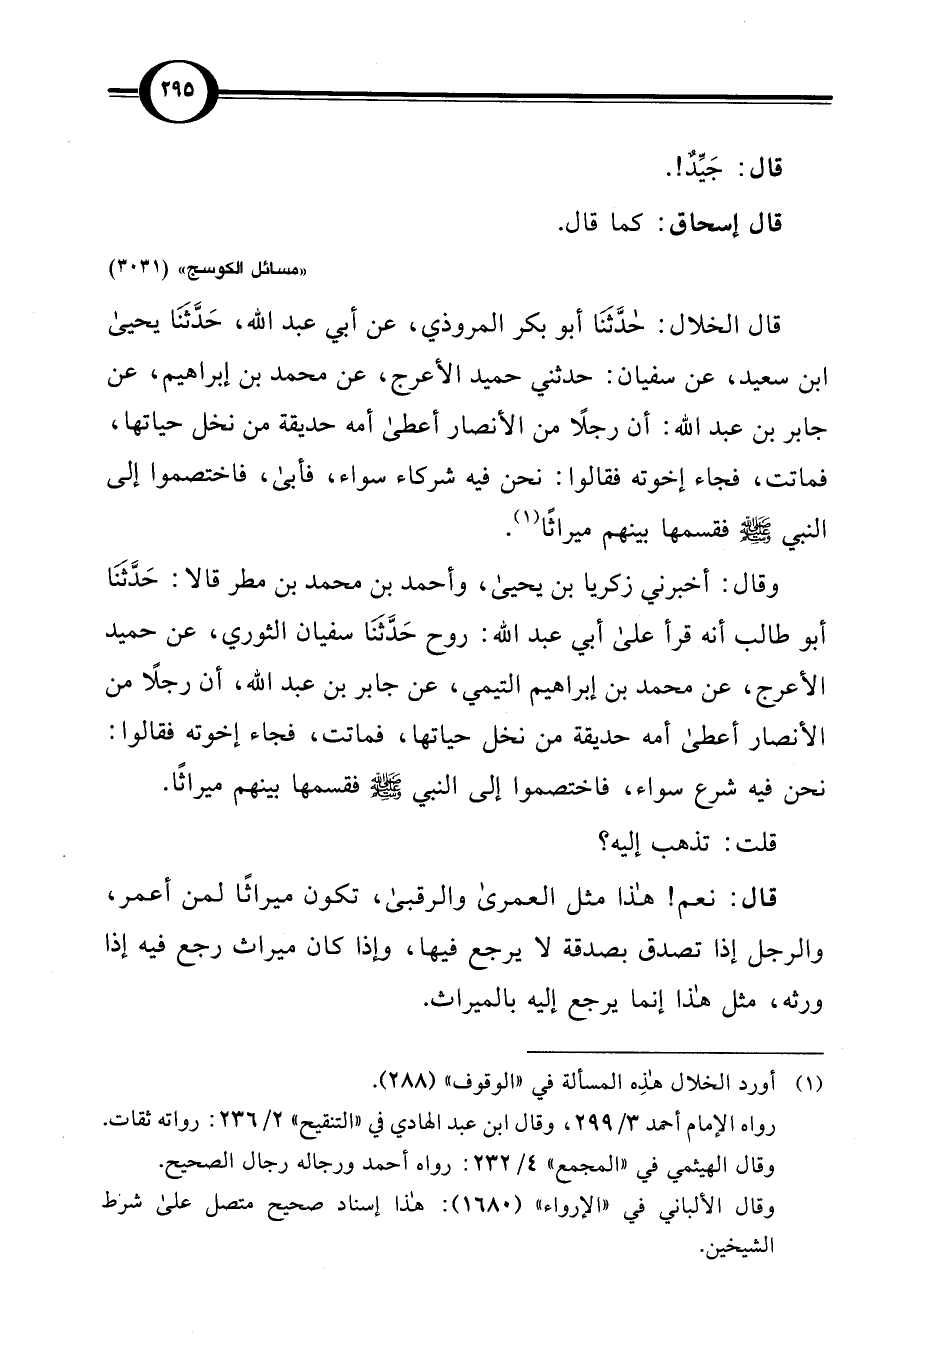 ٢٩٥
قال: جَيِّدٌ!.
قال إسحاق: كما قال.
«مسائل الكوسج» (٣٠٣١)
قال الخلال: حَدَّثَنَا أبو بكر المروذي، عن أبي عبد الله، حَدَّثَنَا يحيىٰ
ابن سعيد، عن سفيان: حدثني حميد الأعرج، عن محمد بن إبراهيم، عن
جابر بن عبد الله: أن رجلًا من الأنصار أعطىٰ أمه حديقة من نخل حياتها،
فماتت، فجاء إخوته فقالوا: نحن فيه شركاء سواء، فأبىٰ، فاختصموا إلى
النبي ﷺ فقسمها بينهم ميراثًا(١).
وقال: أخبرني زكريا بن يحيىٰ، وأحمد بن محمد بن مطر قالا: حَدَّثَنَا
أبو طالب أنه قرأ علىٰ أبي عبد الله: روح حَدَّثَنَا سفيان الثوري، عن حميد
الأعرج، عن محمد بن إبراهيم التيمي، عن جابر بن عبد الله، أن رجلًا من
الأنصار أعطىٰ أمه حديقة من نخل حياتها، فماتت، فجاء إخوته فقالوا:
نحن فيه شرع سواء، فاختصموا إلى النبي ﷺ فقسمها بينهم ميراثًا.
قلت: تذهب إليه؟
قال: نعم! هٰذا مثل العمرىٰ والرقبىٰ، تكون ميراثًا لمن أعمر،
والرجل إذا تصدق بصدقة لا يرجع فيها، وإذا كان ميراث رجع فيه إذا
ورثه، مثل هٰذا إنما يرجع إليه بالميراث.
(١) أورد الخلال هٰذِه المسألة في «الوقوف» (٢٨٨).
رواه الإمام أحمد ٣/ ٢٩٩، وقال ابن عبد الهادي في «التنقيح» ٢/ ٢٣٦: رواته ثقات.
وقال الهيثمي في «المجمع» ٤/ ٢٣٢: رواه أحمد ورجاله رجال الصحيح.
وقال الألباني في «الإرواء» (١٦٨٠): هٰذا إسناد صحيح متصل علىٰ شرط
الشيخين.